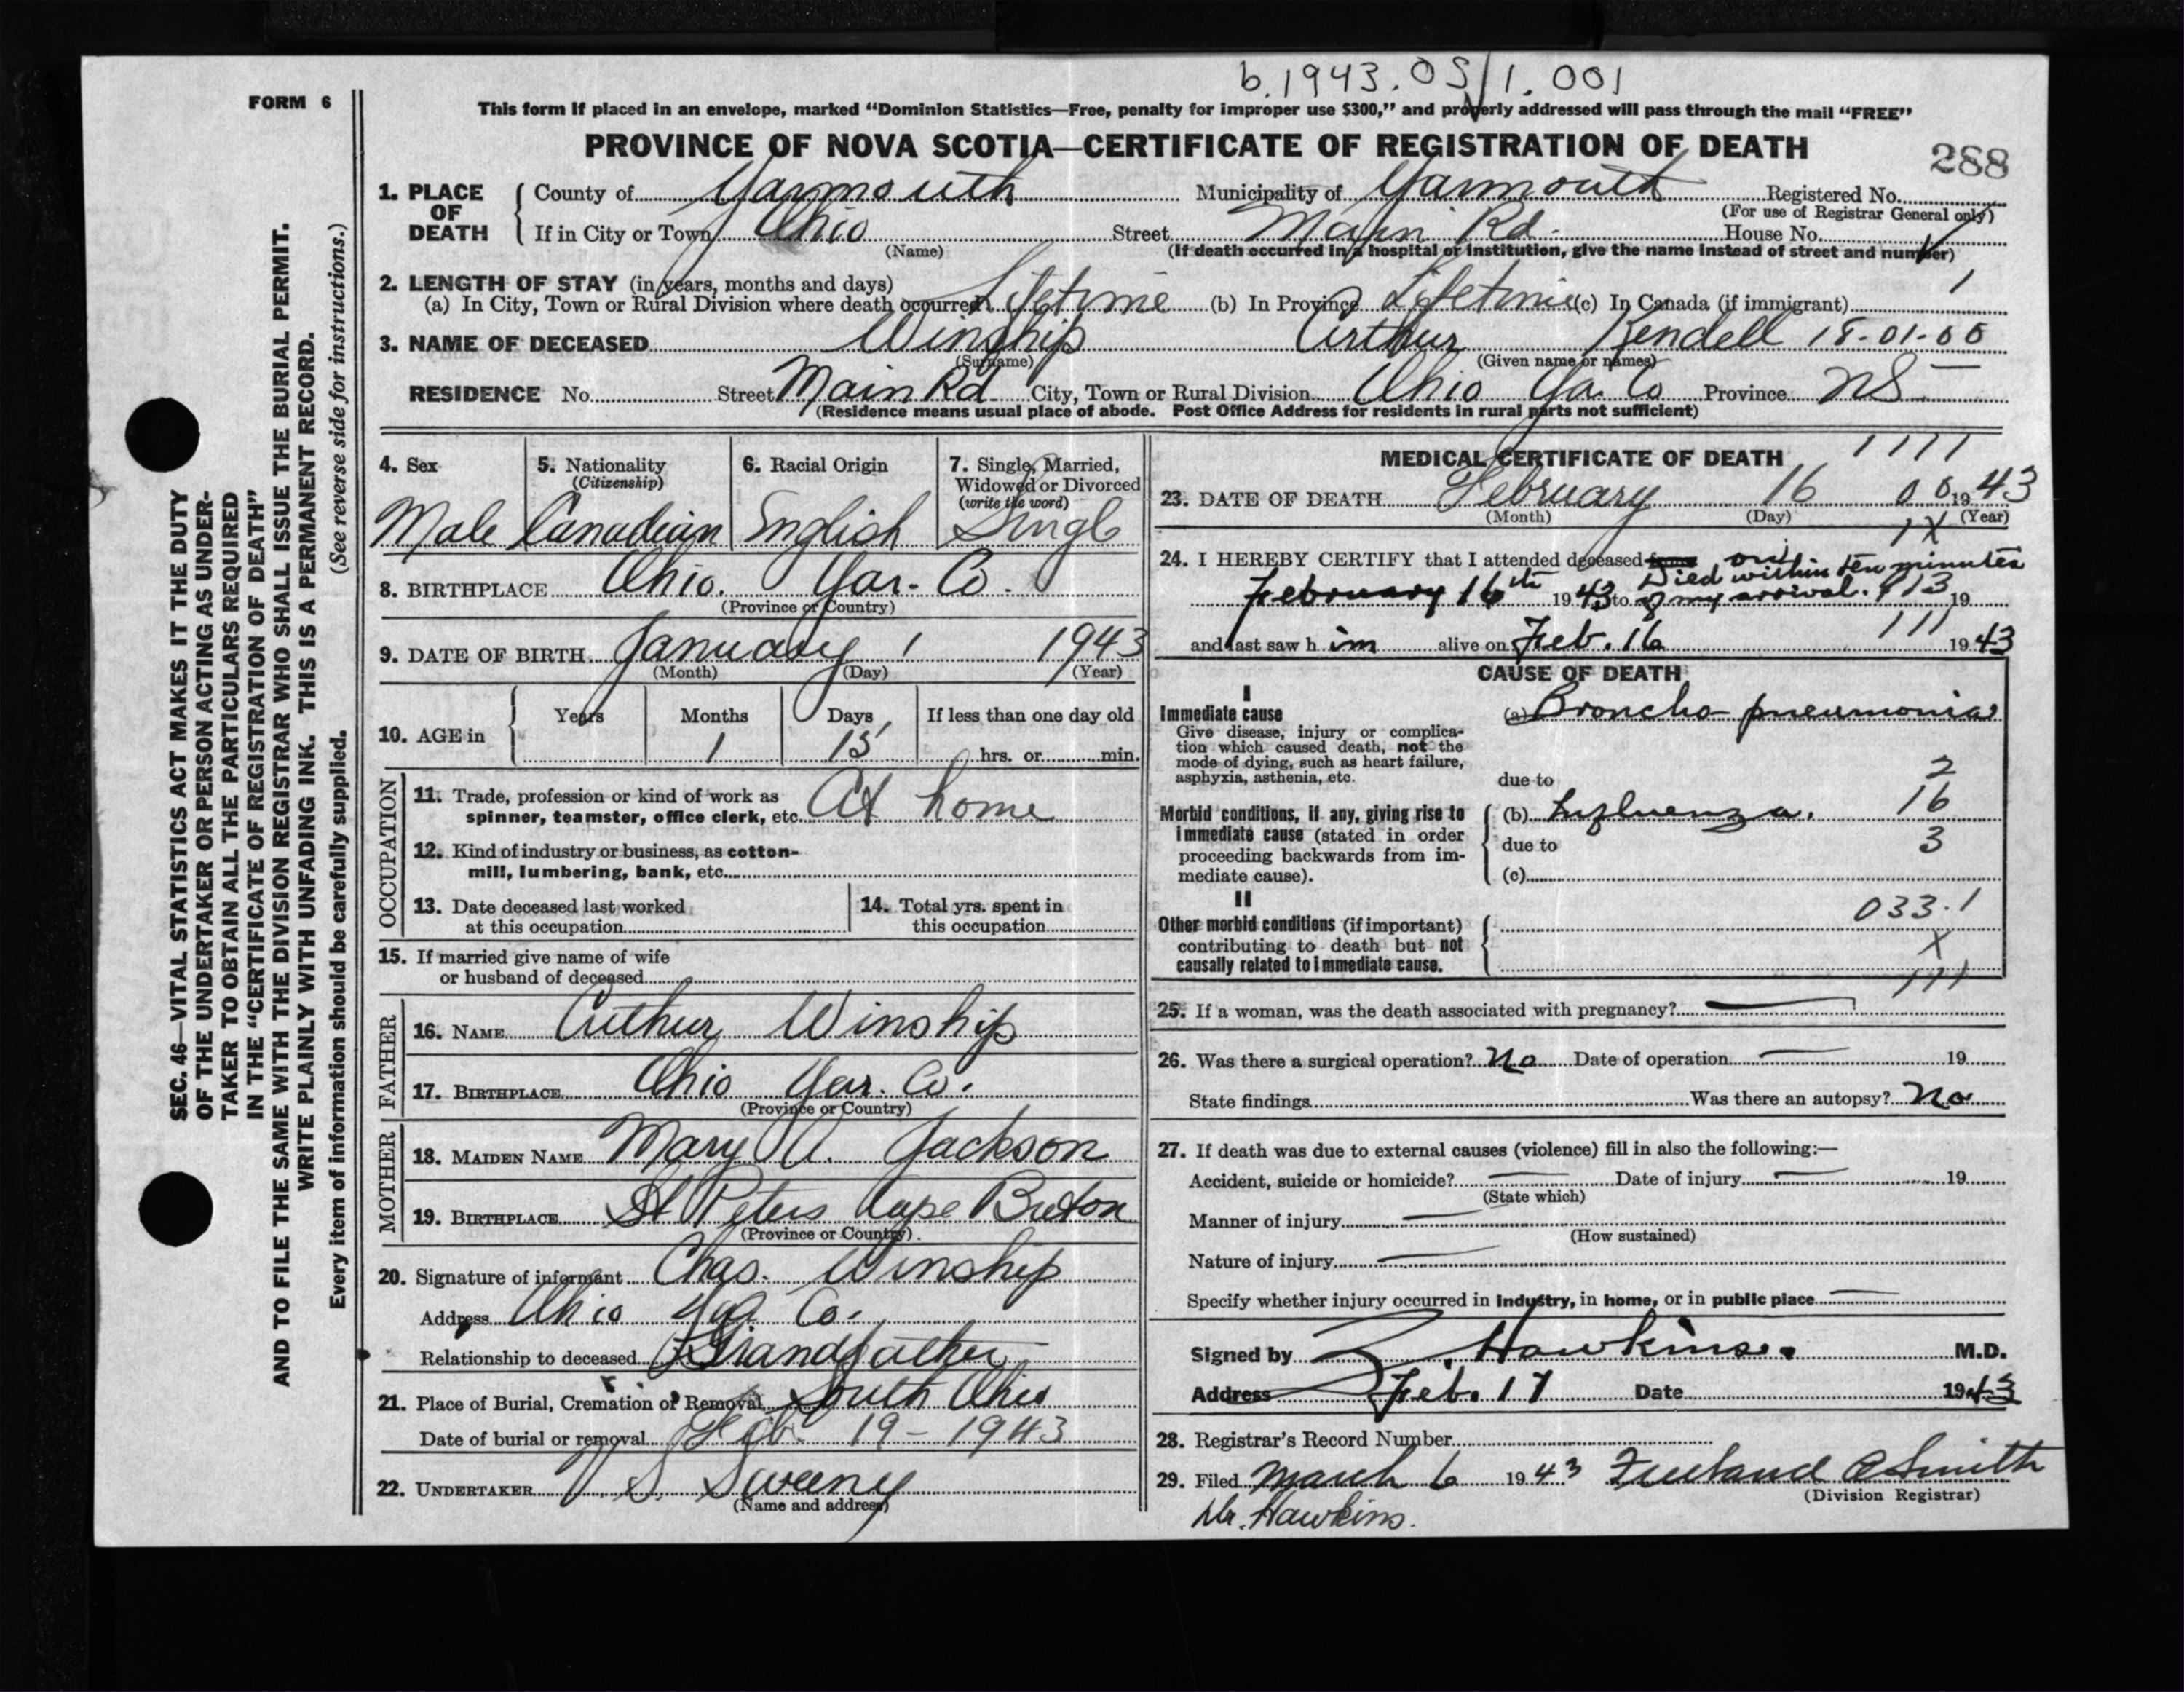 b.1943.05/1.001
FORM 6
This form if placed in an envelope, marked "Dominion Statistics—Free, penalty for improper use $300," and properly addressed will pass through the mail "FREE"
PROVINCE OF NOVA SCOTIA—CERTIFICATE OF REGISTRATION OF DEATH
288
1. PLACE OF DEATH { County of Yarmouth Municipality of Yarmouth Registered No.
(For use of Registrar General only)
If in City or Town Ohio Street Main Rd. House No.
(Name) (If death occurred in a hospital or institution, give the name instead of street and number)
2. LENGTH OF STAY (in years, months and days)
(a) In City, Town or Rural Division where death occurred Lifetime (b) In Province Lifetime (c) In Canada (if immigrant) 1
3. NAME OF DECEASED Winship Arthur Kendell 18-01-00
(Surname) (Given name or names)
RESIDENCE No. Street Main Rd City, Town or Rural Division Ohio Ya. Co Province NS
(Residence means usual place of abode. Post Office Address for residents in rural parts not sufficient)
4. Sex 5. Nationality 6. Racial Origin 7. Single, Married,
(Citizenship) Widowed or Divorced
(write the word)
Male Canadian English Single
8. BIRTHPLACE Ohio. Yar. Co.
(Province or Country)
9. DATE OF BIRTH January 1 1943
(Month) (Day) (Year)
10. AGE in { Years Months Days If less than one day old
1 15 hrs. or min.
OCCUPATION
11. Trade, profession or kind of work as
spinner, teamster, office clerk, etc. At home
12. Kind of industry or business, as cotton-
mill, lumbering, bank, etc.
13. Date deceased last worked 14. Total yrs. spent in
at this occupation this occupation
15. If married give name of wife
or husband of deceased
FATHER
16. NAME Arthur Winship
17. BIRTHPLACE Ohio Yar. Co.
(Province or Country)
MOTHER
18. MAIDEN NAME Mary A. Jackson
19. BIRTHPLACE St Peters Cape Breton
(Province or Country)
20. Signature of informant Chas. Winship
Address Ohio Ya. Co.
Relationship to deceased Grandfather
21. Place of Burial, Cremation or Removal South Ohio
Date of burial or removal Feb. 19 - 1943
22. UNDERTAKER V. S. Sweeny
(Name and address)
MEDICAL CERTIFICATE OF DEATH 1111
23. DATE OF DEATH February 16 00 1943
(Month) (Day) (Year)
1X
24. I HEREBY CERTIFY that I attended deceased from on
Died within ten minutes
February 16th 1943 to of my arrival. 113 19
111
and last saw him alive on Feb. 16 1943
CAUSE OF DEATH
I
Immediate cause (a) Broncho pneumonia
Give disease, injury or complica-
tion which caused death, not the
mode of dying, such as heart failure,
asphyxia, asthenia, etc. due to 2
16
Morbid conditions, if any, giving rise to (b) Influenza.
immediate cause (stated in order due to 3
proceeding backwards from im-
mediate cause). (c)
II
033.1
Other morbid conditions (if important)
contributing to death but not X
causally related to immediate cause.
111
25. If a woman, was the death associated with pregnancy? —
26. Was there a surgical operation? No Date of operation — 19
State findings Was there an autopsy? No
27. If death was due to external causes (violence) fill in also the following:—
Accident, suicide or homicide? — Date of injury — 19
(State which)
Manner of injury —
(How sustained)
Nature of injury —
Specify whether injury occurred in industry, in home, or in public place —
Signed by Z. Hawkins. M.D.
Address Feb. 17 Date 1943
28. Registrar's Record Number
29. Filed March 6 1943 Freeland C Smith
(Division Registrar)
Dr. Hawkins.
SEC. 46—VITAL STATISTICS ACT MAKES IT THE DUTY
OF THE UNDERTAKER OR PERSON ACTING AS UNDER-
TAKER TO OBTAIN ALL THE PARTICULARS REQUIRED
IN THE "CERTIFICATE OF REGISTRATION OF DEATH"
AND TO FILE THE SAME WITH THE DIVISION REGISTRAR WHO SHALL ISSUE THE BURIAL PERMIT.
WRITE PLAINLY WITH UNFADING INK. THIS IS A PERMANENT RECORD.
Every item of information should be carefully supplied. (See reverse side for instructions.)